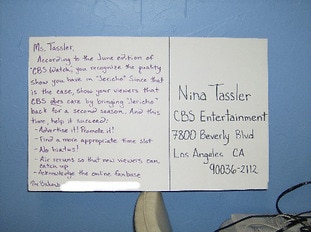 Ms. Tassler,
According to the June edition of
"CBS Watch," you recognize the quality
show you have in "Jericho." Since that
is the case, show your viewers that
CBS does care by bringing "Jericho"
back for a second season. And this
time, help it succeed:
- Advertise it! Promote it!
- Find a more appropriate time slot
- No hiatus!
- Air reruns so that new viewers can
catch up
- Acknowledge the online fanbase
Nina Tassler
CBS Entertainment
7800 Beverly Blvd
Los Angeles CA
90036-2112